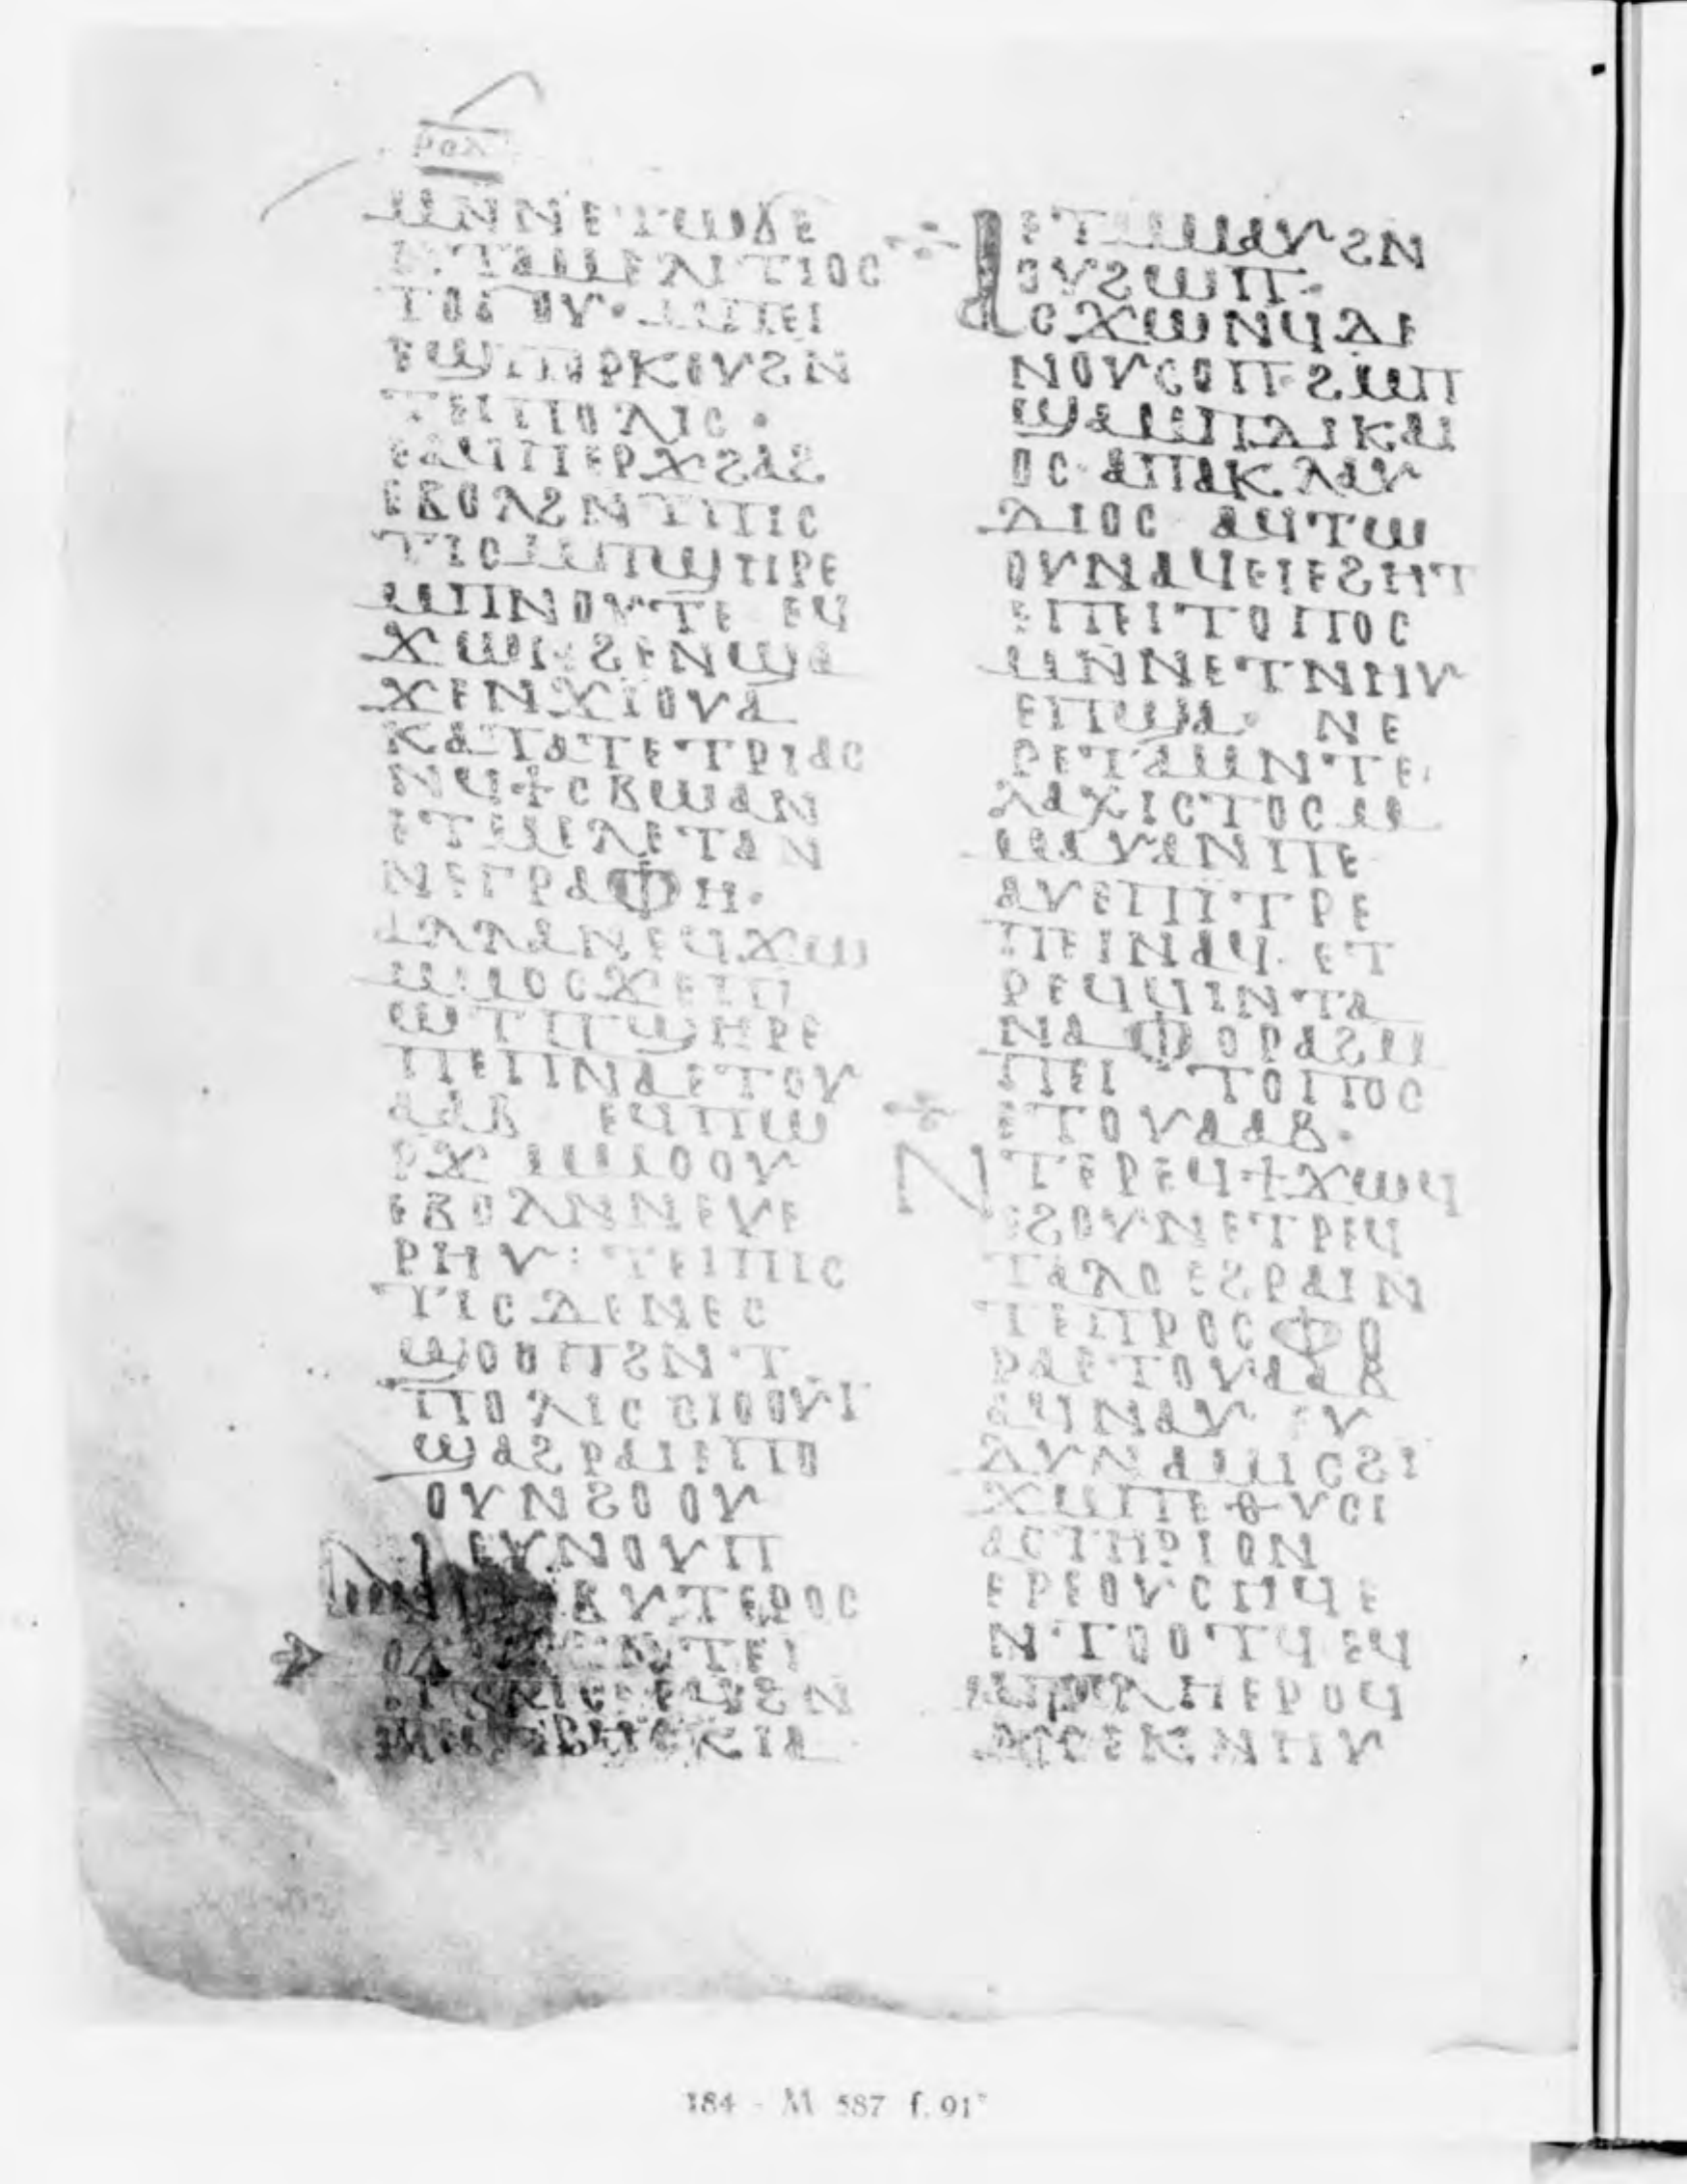 ⲙⲛⲛⲉⲧⲱⲃⲉ
ⲛⲧⲁⲙⲉⲗⲓⲧⲓⲟⲥ
ⲧⲟϭⲟⲩ· ⲙⲡⲉⲓ
ⲉϣⲡⲟⲣⲕⲟⲩϩⲛ
ⲧⲉⲓⲡⲟⲗⲓⲥ·
ⲉⲁϥⲡⲉⲣϫϩⲁϩ
ⲉⲃⲟⲗϩⲛⲧⲡⲓⲥ
ⲧⲓⲥⲙⲡϣⲏⲣⲉ
ⲙⲡⲛⲟⲩⲧⲉ ⲉϥ
ϫⲱⲛϩⲉⲛϣⲁ
ϫⲉⲛϫⲓⲟⲩⲁ
ⲕⲁⲧⲁⲧⲉⲧⲣⲓⲁⲥ
ⲛϥϯⲥⲃⲱⲁⲛ
ⲉⲧⲙⲉⲗⲉⲧⲁⲛ
ⲛⲉⲅⲣⲁⲫⲏ·
ⲁⲗⲗⲁⲛⲉϥϫⲱ
ⲙⲙⲟⲥϫⲉⲡⲓ
ⲱⲧⲡϣⲏⲣⲉ
ⲡⲉⲡⲛⲁⲉⲧⲟⲩ
ⲁⲁⲃ ⲉϥⲡⲱ
ⲣϫ ⲙⲙⲟⲟⲩ
ⲉⲃⲟⲗⲛⲛⲉⲩⲉ
ⲣⲏⲩ: ⲧⲉⲓⲡⲓⲥ
ⲧⲓⲥⲇⲉⲛⲉⲥ
ϣⲟⲟⲡϩⲛⲧ
ⲡⲟⲗⲓⲥⲥⲓⲟⲟⲩⲧ
ϣⲁϩⲣⲁⲓⲉⲡⲟ
ⲟⲩⲛϩⲟⲟⲩ
ⲛⲉⲩⲛⲟⲩⲡ
ⲃⲩⲧⲉⲣⲟⲥ
ϩⲛⲧⲉⲓ
ϩⲛ
ⲕⲓⲁ
ⲉⲧⲙⲙⲁⲩϩⲛ
ⲟⲩϩⲱⲡ·
ⲁⲥϫⲱⲛϥⲇⲉ
ⲛⲟⲩⲥⲟⲡ·ϩⲙⲡ
ϣⲁⲙⲡⲇⲓⲕⲁⲓ
ⲟⲥ·ⲁⲡⲁⲕⲗⲁⲩ
ⲇⲓⲟⲥ ⲁϥⲧⲱ
ⲟⲩⲛⲁϥⲉⲓⲉϩⲏⲧ
ⲉⲡⲉⲓⲧⲟⲡⲟⲥ
ⲙⲛⲛⲉⲧⲛⲏⲩ
ⲉⲡϣⲁ· ⲛⲉ
ⲣⲉⲧⲁⲙⲛⲧⲉ
ⲗⲁⲭⲓⲥⲧⲟⲥⲙ
ⲙⲁⲩⲁⲛⲡⲉ
ⲁⲩⲉⲡⲓⲧⲣⲉ
ⲡⲉⲓⲛⲁϥ· ⲉⲧ
ⲣⲉϥϥⲓⲛⲧⲁ
ⲛⲁⲫⲟⲣⲁϩⲙ
ⲡⲉⲓ ⲧⲟⲡⲟⲥ
ⲉⲧⲟⲩⲁⲁⲃ·
ⲛⲧⲉⲣⲉϥϯϫⲱϥ
ⲉϩⲟⲩⲛⲉⲧⲣⲉϥ
ⲧⲁⲗⲟⲉϩⲣⲁⲓⲛ
ⲧⲉⲡⲣⲟⲥⲫⲟ
ⲣⲁⲉⲧⲟⲩⲁⲁⲃ
ⲁϥⲛⲁⲩ ⲉⲩ
ⲇⲩⲛⲁⲙⲓⲥϩⲓ
ϫⲙⲡⲉⲑⲩⲥⲓ
ⲁⲥⲧⲏⲣⲓⲟⲛ
ⲉⲣⲉⲟⲩⲥⲏϥⲉ
ⲛⲧⲟⲟⲧϥ ⲉϥ
ⲏⲉⲣⲟϥ
ⲛⲏⲩ
184 - M 587 f. 91